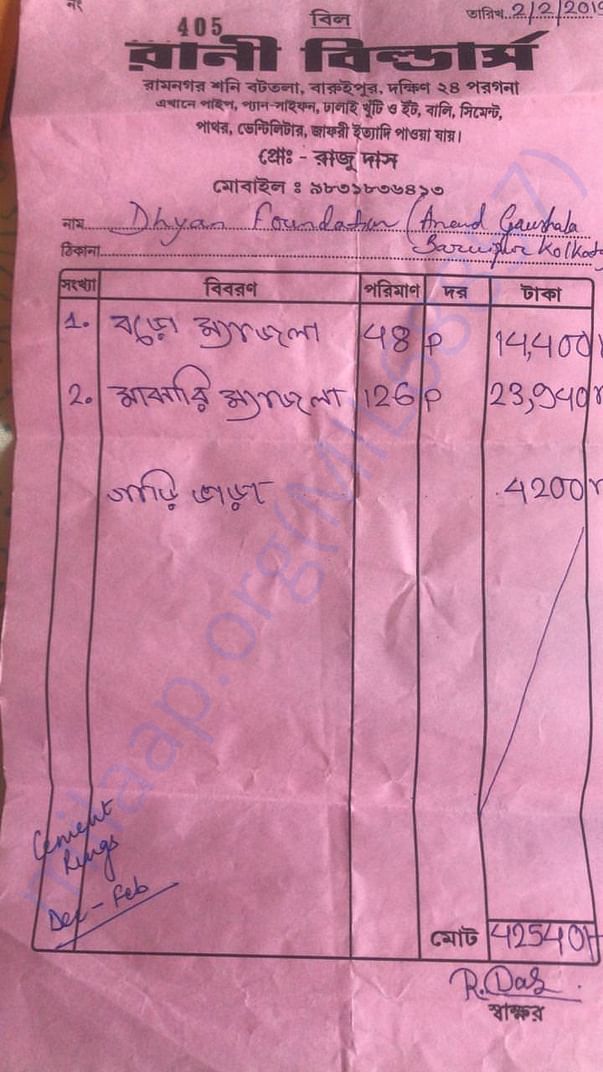 নং 405 বিল তারিখ 2/2/2019
রানী বিল্ডার্স
রামনগর শনি বটতলা, বারুইপুর, দক্ষিণ ২৪ পরগনা
এখানে পাইপ, প্যান-সাইফন, ঢালাই খুঁটি ও ইঁট, বালি, সিমেন্ট,
পাথর, ভেন্টিলিটার, জাফরী ইত্যাদি পাওয়া যায়।
প্রোঃ - রাজু দাস
মোবাইল : ৯৮৩১৮৩৬৪১৩
নাম Dhyan Foundation (Anand Gaushala
ঠিকানা Baruipur Kolkata
সংখ্যা বিবরণ পরিমাণ দর টাকা
1. বড়ো ম্যাজলা 48 p 14,400/
2. মাঝারি ম্যাজলা 126 p 23,940/
গাড়ি ভাড়া 4200/
Cement
Rings
Dec - Feb
মোট 42540/-
R. Das.
স্বাক্ষর
milaap.org